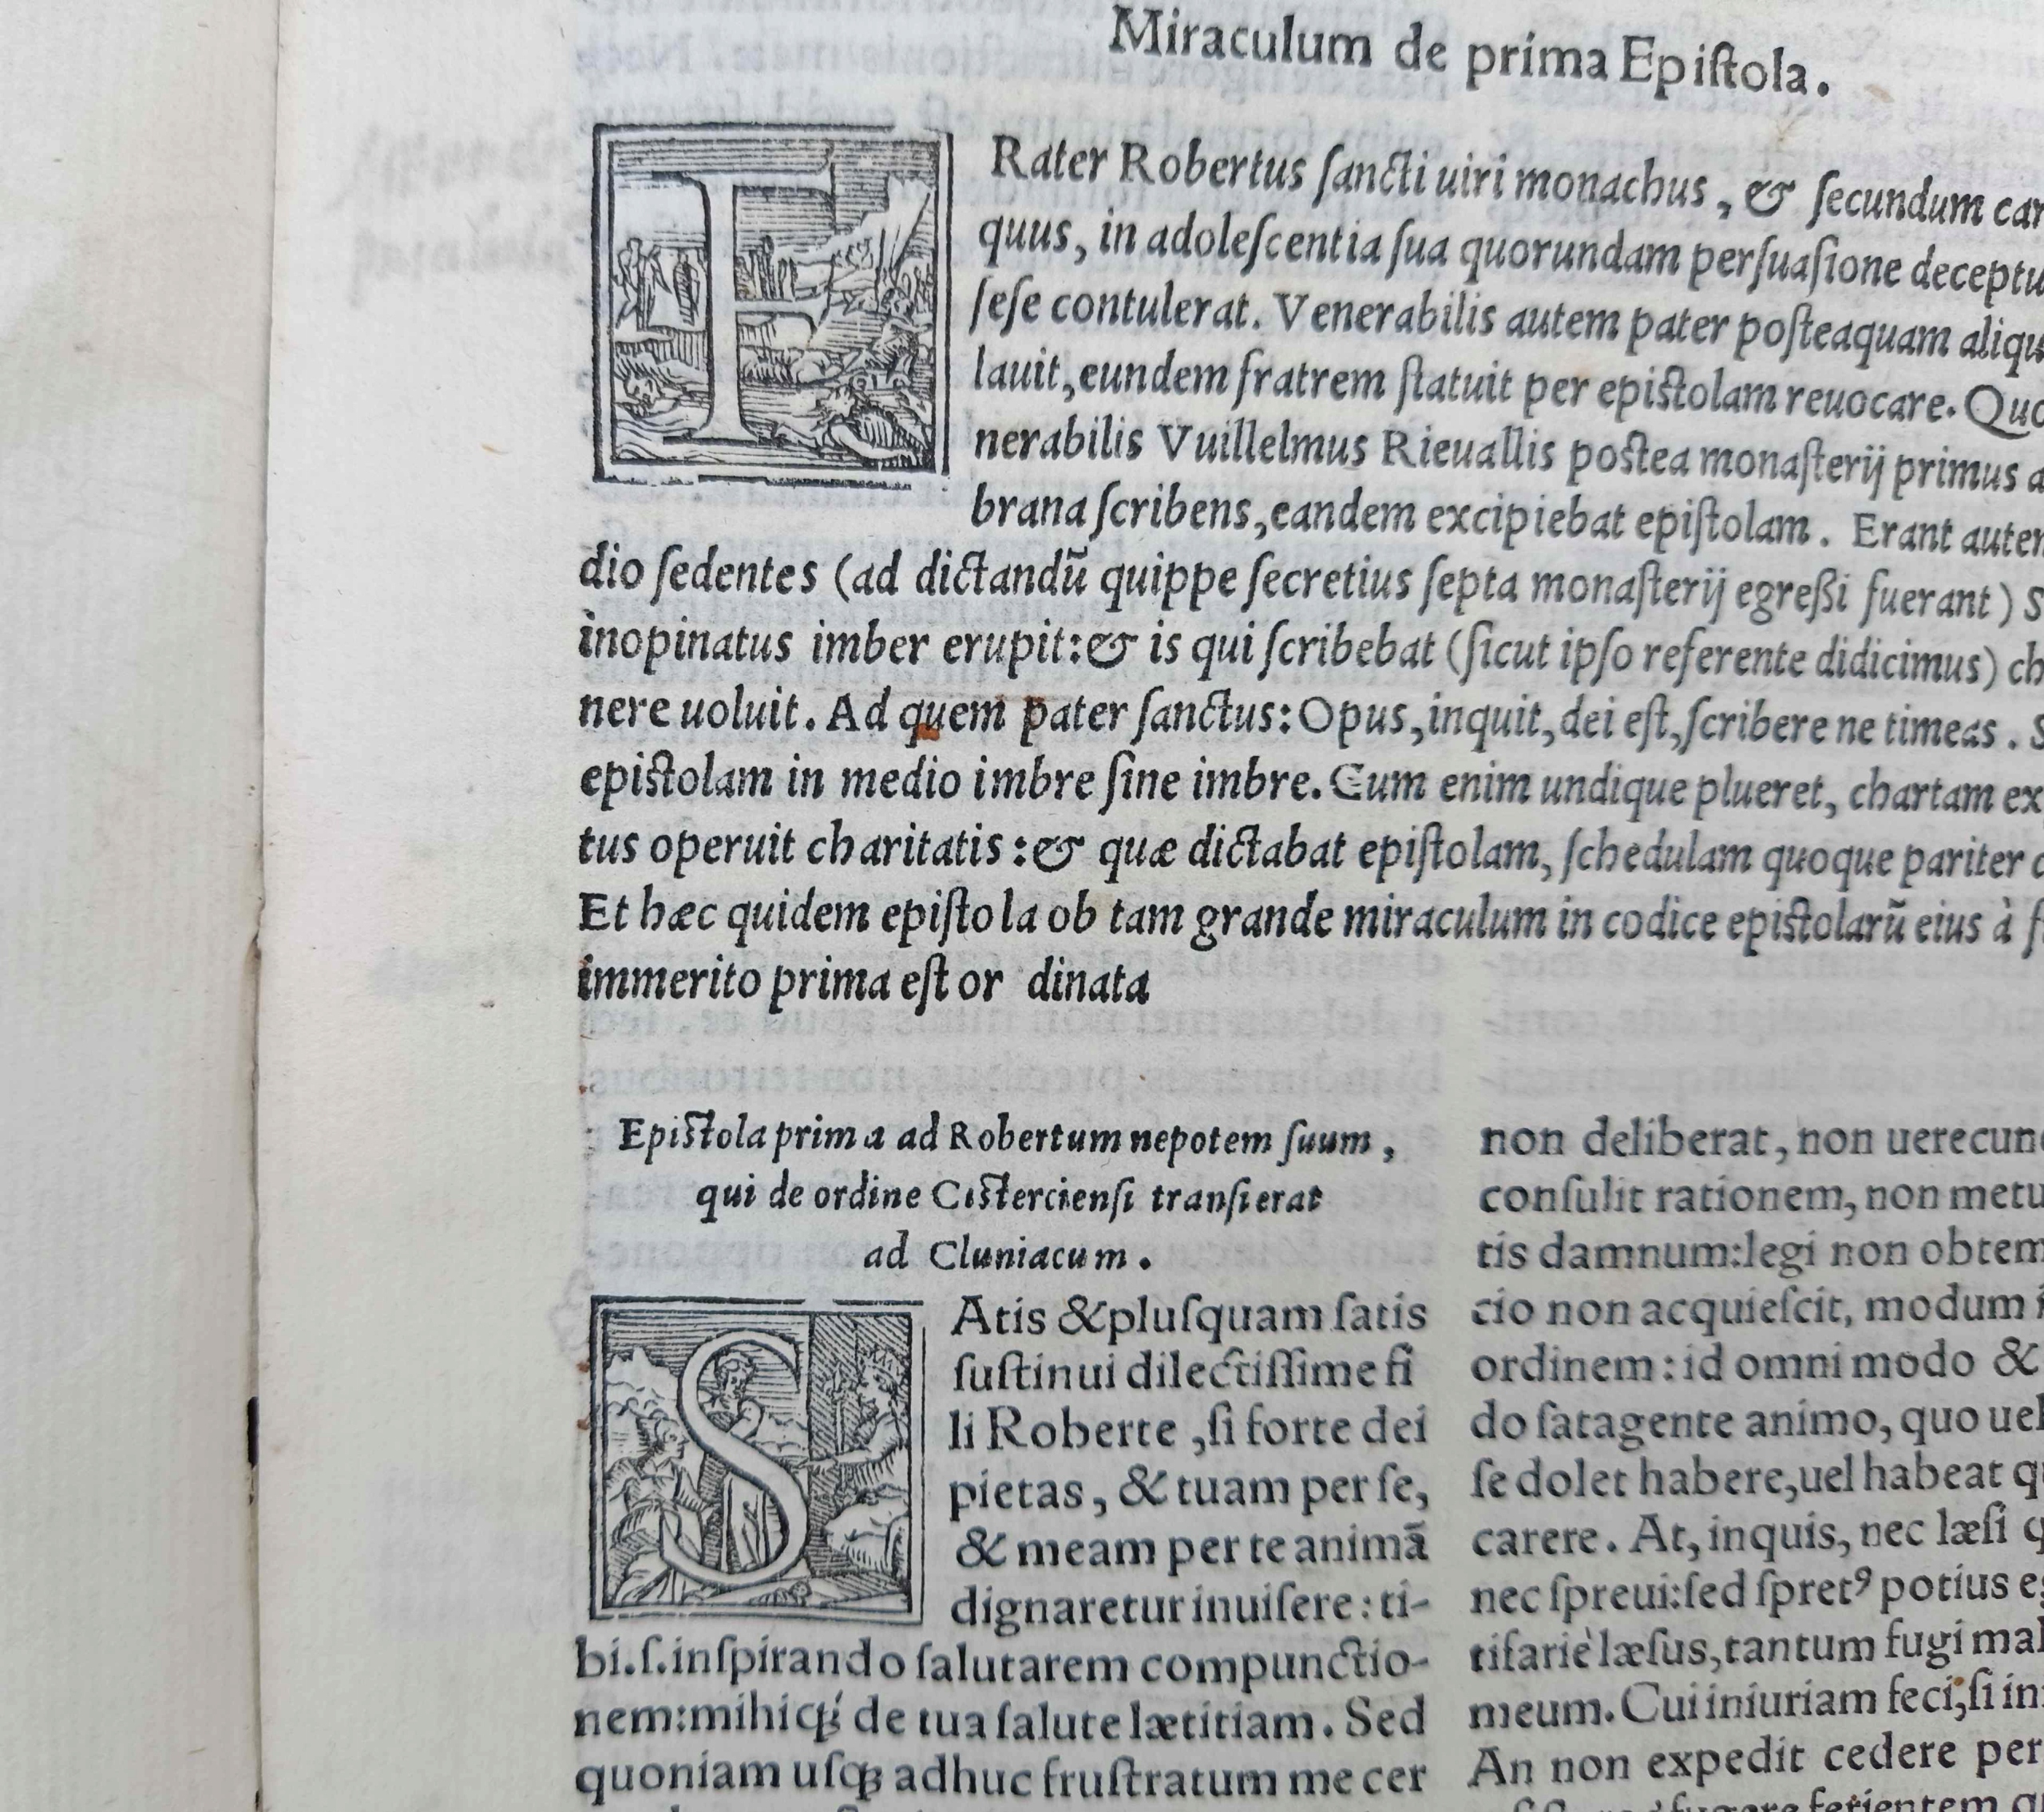 Miraculum de prima Epiſtola.
FRater Robertus ſancti uiri monachus, & ſecundum car
quus, in adoleſcentia ſua quorundam perſuaſione deceptu
ſeſe contulerat. Venerabilis autem pater poſteaquam aliqu
lauit, eundem fratrem ſtatuit per epiſtolam reuocare. Quo
nerabilis Vuillelmus Rieuallis poſtea monaſterij primus a
brana ſcribens, eandem excipiebat epiſtolam. Erant autem
dio ſedentes (ad dictandū quippe ſecretius ſepta monaſterij egreßi fuerant) S
inopinatus imber erupit: & is qui ſcribebat (ſicut ipſo referente didicimus) ch
nere uoluit. Ad quem pater ſanctus: Opus, inquit, dei eſt, ſcribere ne timeas. S
epiſtolam in medio imbre ſine imbre. Cum enim undique plueret, chartam ex
tus operuit charitatis: & quæ dictabat epiſtolam, ſchedulam quoque pariter c
Et hæc quidem epiſtola ob tam grande miraculum in codice epiſtolarū eius à f
immerito prima eſt or dinata
Epiſtola prima ad Robertum nepotem ſuum,
qui de ordine Ciſtercienſi tranſierat
ad Cluniacum.
SAtis & pluſquam ſatis
ſuſtinui dilectiſſime fi
li Roberte, ſi forte dei
pietas, & tuam per ſe,
& meam per te animā
dignaretur inuiſere: ti-
bi.ſ.inſpirando ſalutarem compunctio-
nem: mihiq́; de tua ſalute lætitiam. Sed
quoniam uſq; adhuc fruſtratum me cer
non deliberat, non uerecund
conſulit rationem, non metu
tis damnum: legi non obtem
cio non acquieſcit, modum i
ordinem: id omni modo &
do ſatagente animo, quo uel
ſe dolet habere, uel habeat qu
carere. At, inquis, nec læſi q
nec ſpreui: ſed ſpretꝰ potius eg
tifariè læſus, tantum fugi mal
meum. Cui iniuriam feci, ſi in
An non expedit cedere per
fugere ferientem